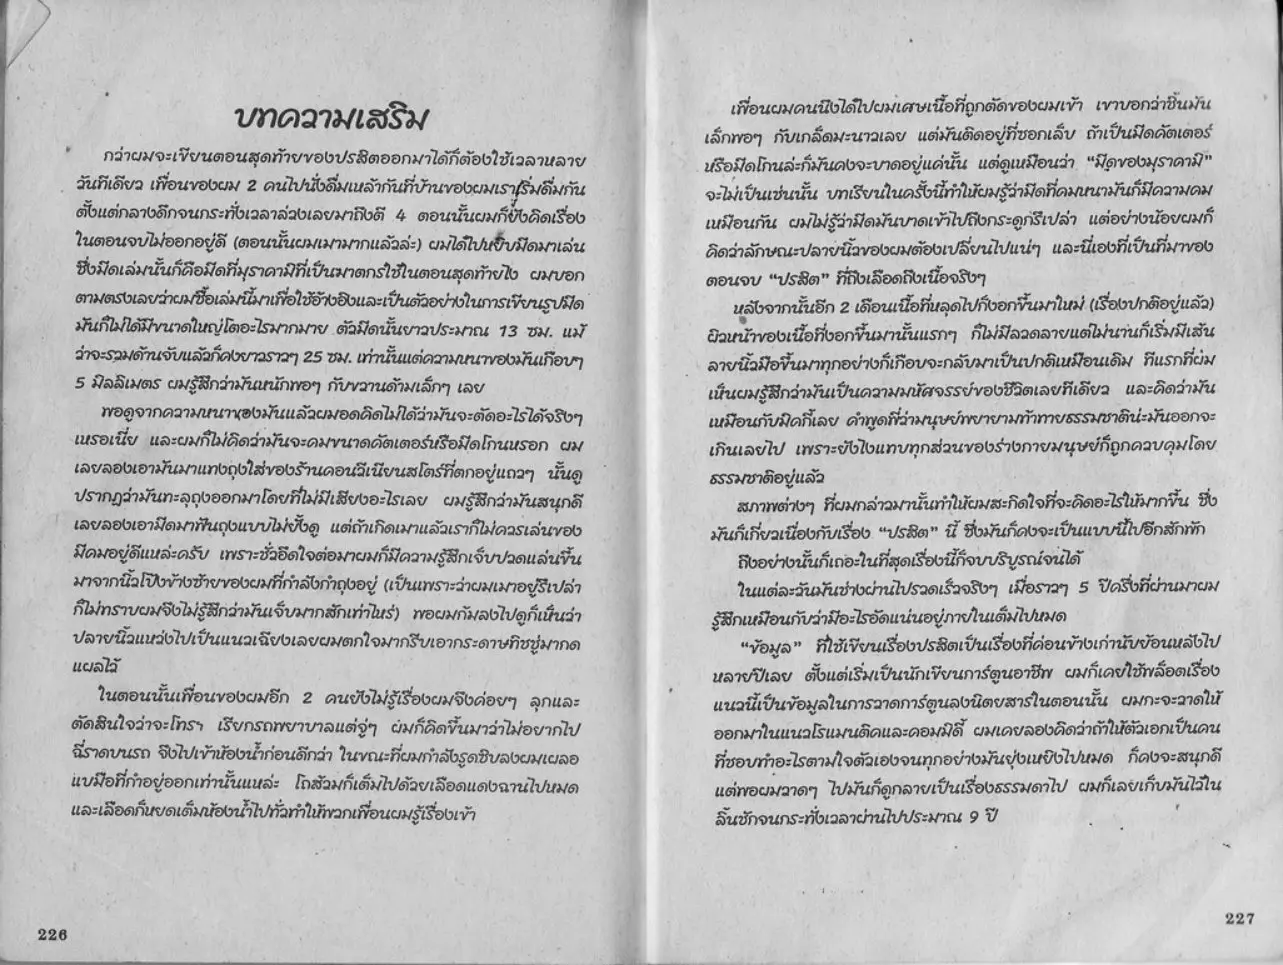 บทความเสริม
กว่าผมจะเขียนตอนสุดท้ายของปรสิตออกมาได้ก็ต้องใช้เวลาหลาย
วันทีเดียว เพื่อนของผม 2 คนไปนั่งดื่มเหล้ากันที่บ้านของผมเราเริ่มดื่มกัน
ตั้งแต่กลางดึกจนกระทั่งเวลาล่วงเลยมาถึงตี 4 ตอนนั้นผมก็ยังคิดเรื่อง
ในตอนจบไม่ออกอยู่ดี (ตอนนั้นผมเมามากแล้วล่ะ) ผมได้ไปหยิบมีดมาเล่น
ซึ่งมีดเล่มนั้นก็คือมีดที่มุราคามิที่เป็นฆาตกรใช้ในตอนสุดท้ายไง ผมบอก
ตามตรงเลยว่าผมซื้อเล่มนี้มาเพื่อใช้อ้างอิงและเป็นตัวอย่างในการเขียนรูปมีด
มันก็ไม่ได้มีขนาดใหญ่โตอะไรมากมาย ตัวมีดนั้นยาวประมาณ 13 ซม. แม้
ว่าจะรวมด้านจับแล้วก็คงยาวราวๆ 25 ซม. เท่านั้นแต่ความหนาของมันเกือบๆ
5 มิลลิเมตร ผมรู้สึกว่ามันหนักพอๆ กับขวานด้ามเล็กๆ เลย
พอดูจากความหนาของมันแล้วผมอดคิดไม่ได้ว่ามันจะตัดอะไรได้จริงๆ
เหรอเนี่ย และผมก็ไม่คิดว่ามันจะคมขนาดคัตเตอร์หรือมีดโกนหรอก ผม
เลยลองเอามันมาแทงถุงใส่ของร้านคอนวีเนียนสโตร์ที่ตกอยู่แถวๆ นั้นดู
ปรากฏว่ามันทะลุถุงออกมาโดยที่ไม่มีเสียงอะไรเลย ผมรู้สึกว่ามันสนุกดี
เลยลองเอามีดมาฟันถุงแบบไม่ยั้งดู แต่ถ้าเกิดเมาแล้วเราก็ไม่ควรเล่นของ
มีคมอยู่ดีแหล่ะครับ เพราะชั่วอึดใจต่อมาผมก็มีความรู้สึกเจ็บปวดแล่นขึ้น
มาจากนิ้วโป้งข้างซ้ายของผมที่กำลังกำถุงอยู่ (เป็นเพราะว่าผมเมาอยู่รึเปล่า
ก็ไม่ทราบผมจึงไม่รู้สึกว่ามันเจ็บมากสักเท่าไหร่) พอผมก้มลงไปดูก็เห็นว่า
ปลายนิ้วแหว่งไปเป็นแนวเฉียงเลยผมตกใจมากรีบเอากระดาษทิชชู่มากด
แผลไว้
ในตอนนั้นเพื่อนของผมอีก 2 คนยังไม่รู้เรื่องผมจึงค่อยๆ ลุกและ
ตัดสินใจว่าจะโทรฯ เรียกรถพยาบาลแต่จู่ๆ ผมก็คิดขึ้นมาว่าไม่อยากไป
ฉี่ราดบนรถ จึงไปเข้าห้องน้ำก่อนดีกว่า ในขณะที่ผมกำลังรูดซิบลงผมเผลอ
แบมือที่กำอยู่ออกเท่านั้นแหล่ะ โถส้วมก็เต็มไปด้วยเลือดแดงฉานไปหมด
และเลือดก็หยดเต็มห้องน้ำไปทั่วทำให้พวกเพื่อนผมรู้เรื่องเข้า
226
เพื่อนผมคนนึงได้ไปผมเศษเนื้อที่ถูกตัดของผมเข้า เขาบอกว่าชิ้นมัน
เล็กพอๆ กับเกล็ดมะนาวเลย แต่มันติดอยู่ที่ซอกเล็บ ถ้าเป็นมีดคัตเตอร์
หรือมีดโกนล่ะก็มันคงจะบาดอยู่แค่นั้น แต่ดูเหมือนว่า “มีดของมุราคามิ”
จะไม่เป็นเช่นนั้น บทเรียนในครั้งนี้ทำให้ผมรู้ว่ามีดที่คมหนามันก็มีความคม
เหมือนกัน ผมไม่รู้ว่ามีดมันบาดเข้าไปถึงกระดูกรึเปล่า แต่อย่างน้อยผมก็
คิดว่าลักษณะปลายนิ้วของผมต้องเปลี่ยนไปแน่ๆ และนี่เองที่เป็นที่มาของ
ตอนจบ “ปรสิต” ที่ถึงเลือดถึงเนื้อจริงๆ
หลังจากนั้นอีก 2 เดือนเนื้อที่หลุดไปก็งอกขึ้นมาใหม่ (เรื่องปกติอยู่แล้ว)
ผิวหน้าของเนื้อที่งอกขึ้นมานั้นแรกๆ ก็ไม่มีลวดลายแต่ไม่นานก็เริ่มมีเส้น
ลายนิ้วมือขึ้นมาทุกอย่างก็เกือบจะกลับมาเป็นปกติเหมือนเดิม ทีแรกที่ผม
เห็นผมรู้สึกว่ามันเป็นความมหัศจรรย์ของชีวิตเลยทีเดียว และคิดว่ามัน
เหมือนกับมิคกี้เลย คำพูดที่ว่ามนุษย์พยายามท้าทายธรรมชาติน่ะมันออกจะ
เกินเลยไป เพราะยังไงแทบทุกส่วนของร่างกายมนุษย์ก็ถูกควบคุมโดย
ธรรมชาติอยู่แล้ว
สภาพต่างๆ ที่ผมกล่าวมานั้นทำให้ผมสะกิดใจที่จะคิดอะไรให้มากขึ้น ซึ่ง
มันก็เกี่ยวเนื่องกับเรื่อง “ปรสิต” นี้ ซึ่งมันก็คงจะเป็นแบบนี้ไปอีกสักพัก
ถึงอย่างนั้นก็เถอะในที่สุดเรื่องนี้ก็จบบริบูรณ์จนได้
ในแต่ละวันมันช่างผ่านไปรวดเร็วจริงๆ เมื่อราวๆ 5 ปีครึ่งที่ผ่านมาผม
รู้สึกเหมือนกับว่ามีอะไรอัดแน่นอยู่ภายในเต็มไปหมด
“ข้อมูล” ที่ใช้เขียนเรื่องปรสิตเป็นเรื่องที่ค่อนข้างเก่านับย้อนหลังไป
หลายปีเลย ตั้งแต่เริ่มเป็นนักเขียนการ์ตูนอาชีพ ผมก็เคยใช้พล็อตเรื่อง
แนวนี้เป็นข้อมูลในการวาดการ์ตูนลงนิตยสารในตอนนั้น ผมกะจะวาดให้
ออกมาในแนวโรแมนติคและคอมมิดี้ ผมเคยลองคิดว่าถ้าให้ตัวเอกเป็นคน
ที่ชอบทำอะไรตามใจตัวเองจนทุกอย่างมันยุ่งเหยิงไปหมด ก็คงจะสนุกดี
แต่พอผมวาดๆ ไปมันก็ดูกลายเป็นเรื่องธรรมดาไป ผมก็เลยเก็บมันไว้ใน
ลิ้นชักจนกระทั่งเวลาผ่านไปประมาณ 9 ปี
227